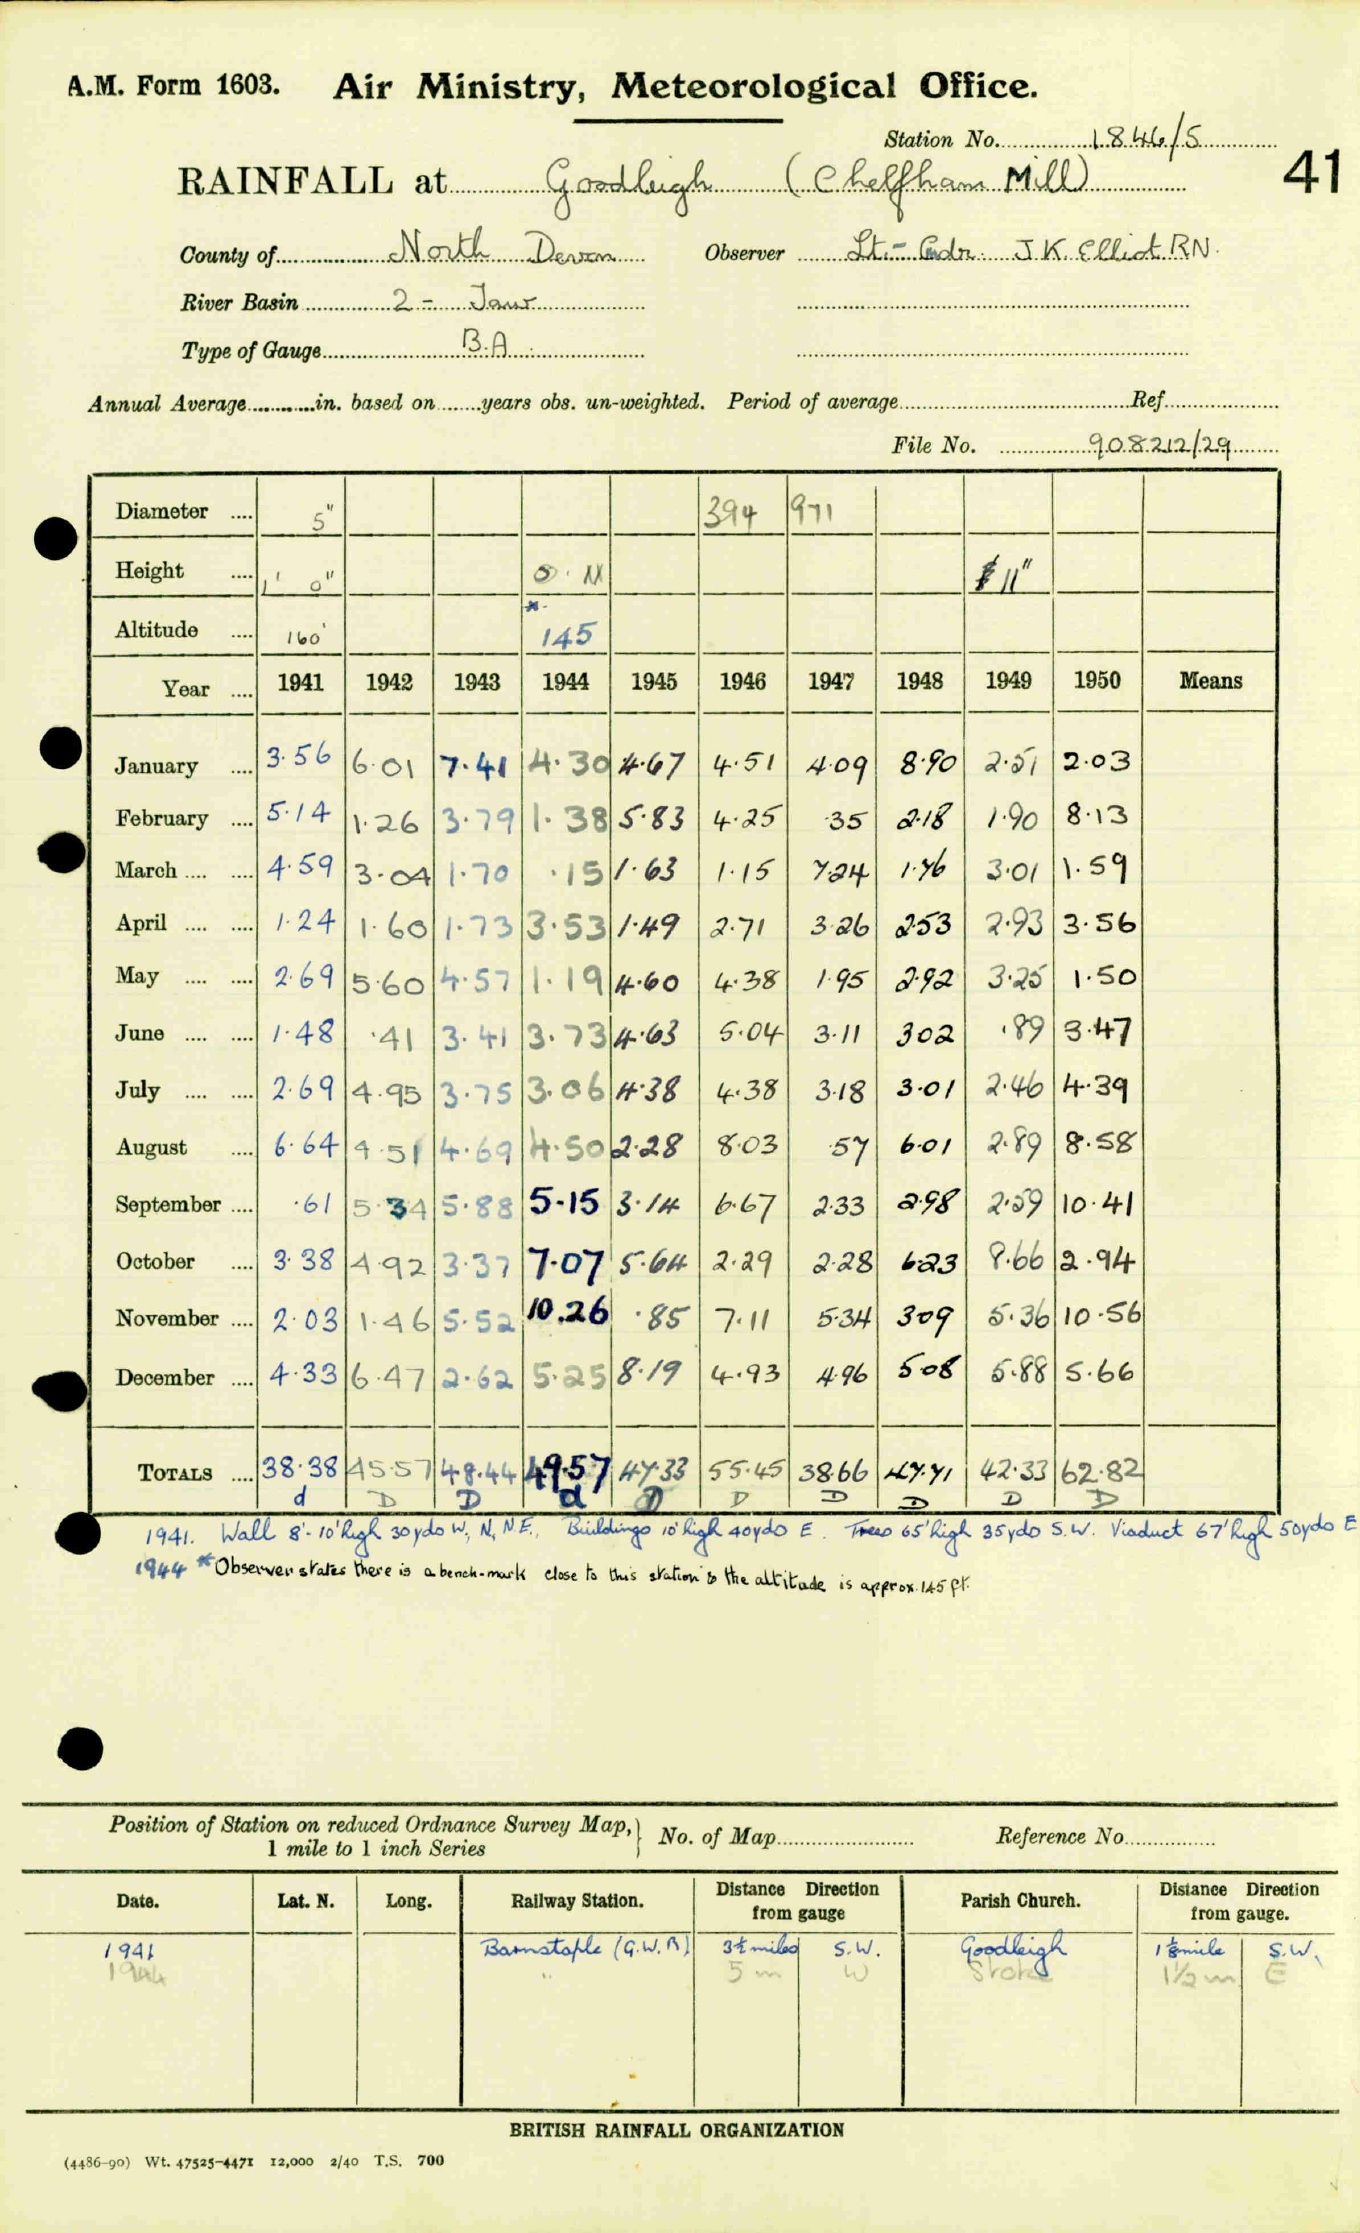 A.M. Form 1603. Air Ministry, Meteorological Office.
Station No. 1846/5
41
RAINFALL at Goodleigh (Chelfham Mill)
County of North Devon Observer Lt.- Cmdr. J.K. Elliot RN.
River Basin 2 - Taw
Type of Gauge B.A.
Annual Average in. based on years obs. un-weighted. Period of average Ref.
File No. 908212/29
Diameter 5" 394 971
Height 1' 0" 0. 11"
Altitude 160' * 145
Year 1941 1942 1943 1944 1945 1946 1947 1948 1949 1950 Means
January 3.56 6.01 7.41 4.30 4.67 4.51 4.09 8.90 2.51 2.03
February 5.14 1.26 3.79 1.38 5.83 4.25 .35 2.18 1.90 8.13
March 4.59 3.04 1.70 .15 1.63 1.15 7.24 1.76 3.01 1.59
April 1.24 1.60 1.73 3.53 1.49 2.71 3.26 2.53 2.93 3.56
May 2.69 5.60 4.57 1.19 4.60 4.38 1.95 2.92 3.25 1.50
June 1.48 .41 3.41 3.73 4.63 5.04 3.11 3.02 .89 3.47
July 2.69 4.95 3.75 3.06 4.38 4.38 3.18 3.01 2.46 4.39
August 6.64 4.51 4.69 4.50 2.28 8.03 .57 6.01 2.89 8.58
September .61 5.34 5.88 5.15 3.14 6.67 2.33 2.98 2.59 10.41
October 3.38 4.92 3.37 7.07 5.64 2.29 2.28 6.23 8.66 2.94
November 2.03 1.46 5.52 10.26 .85 7.11 5.34 3.09 5.36 10.56
December 4.33 6.47 2.62 5.25 8.19 4.93 4.96 5.08 5.88 5.66
TOTALS 38.38 45.57 48.44 49.57 47.33 55.45 38.66 47.71 42.33 62.82
d D D d D D D D D D
1941. Wall 8'-10' high 30 yds W, N, N.E., Buildings 10' high 40 yds E. Trees 65' high 35 yds S.W. Viaduct 67' high 50 yds E
1944 * Observer states there is a bench-mark close to this station & the altitude is approx. 145 ft.
Position of Station on reduced Ordnance Survey Map, 1 mile to 1 inch Series } No. of Map Reference No.
Date. Lat. N. Long. Railway Station. Distance Direction from gauge Parish Church. Distance Direction from gauge.
1941 Barnstaple (G.W.R) 3½ miles S.W. Goodleigh 1⅛ mile S.W.
1944 " 5 m W Stoke 1½ m E
BRITISH RAINFALL ORGANIZATION
(4486-90) Wt. 47525-4471 12,000 2/40 T.S. 700